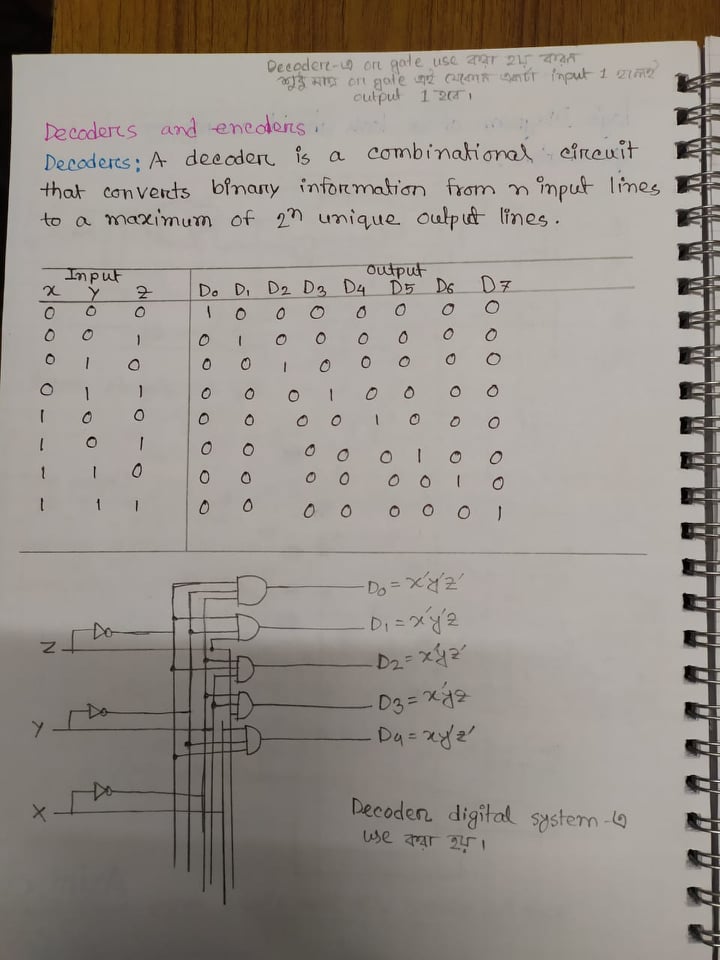 Decoder-এ or gate use করা হয় কারন
শুধু মাত্র or gate এই যেকোন একটা input 1 হলেই
output 1 হবে।
Decoders and encoders.
Decoders: A decoder is a combinational circuit
that converts binary information from n input lines
to a maximum of 2ⁿ unique output lines.
Input Output
x y z D₀ D₁ D₂ D₃ D₄ D5 D6 D7
0 0 0 1 0 0 0 0 0 0 0
0 0 1 0 1 0 0 0 0 0 0
0 1 0 0 0 1 0 0 0 0 0
0 1 1 0 0 0 1 0 0 0 0
1 0 0 0 0 0 0 1 0 0 0
1 0 1 0 0 0 0 0 1 0 0
1 1 0 0 0 0 0 0 0 1 0
1 1 1 0 0 0 0 0 0 0 1
D₀ = x'y'z'
D₁ = x'y'z
Z
D₂ = x'yz'
D3 = x'yz
Y
D4 = xy'z'
X
Decoder digital system-এ
use করা হয়।